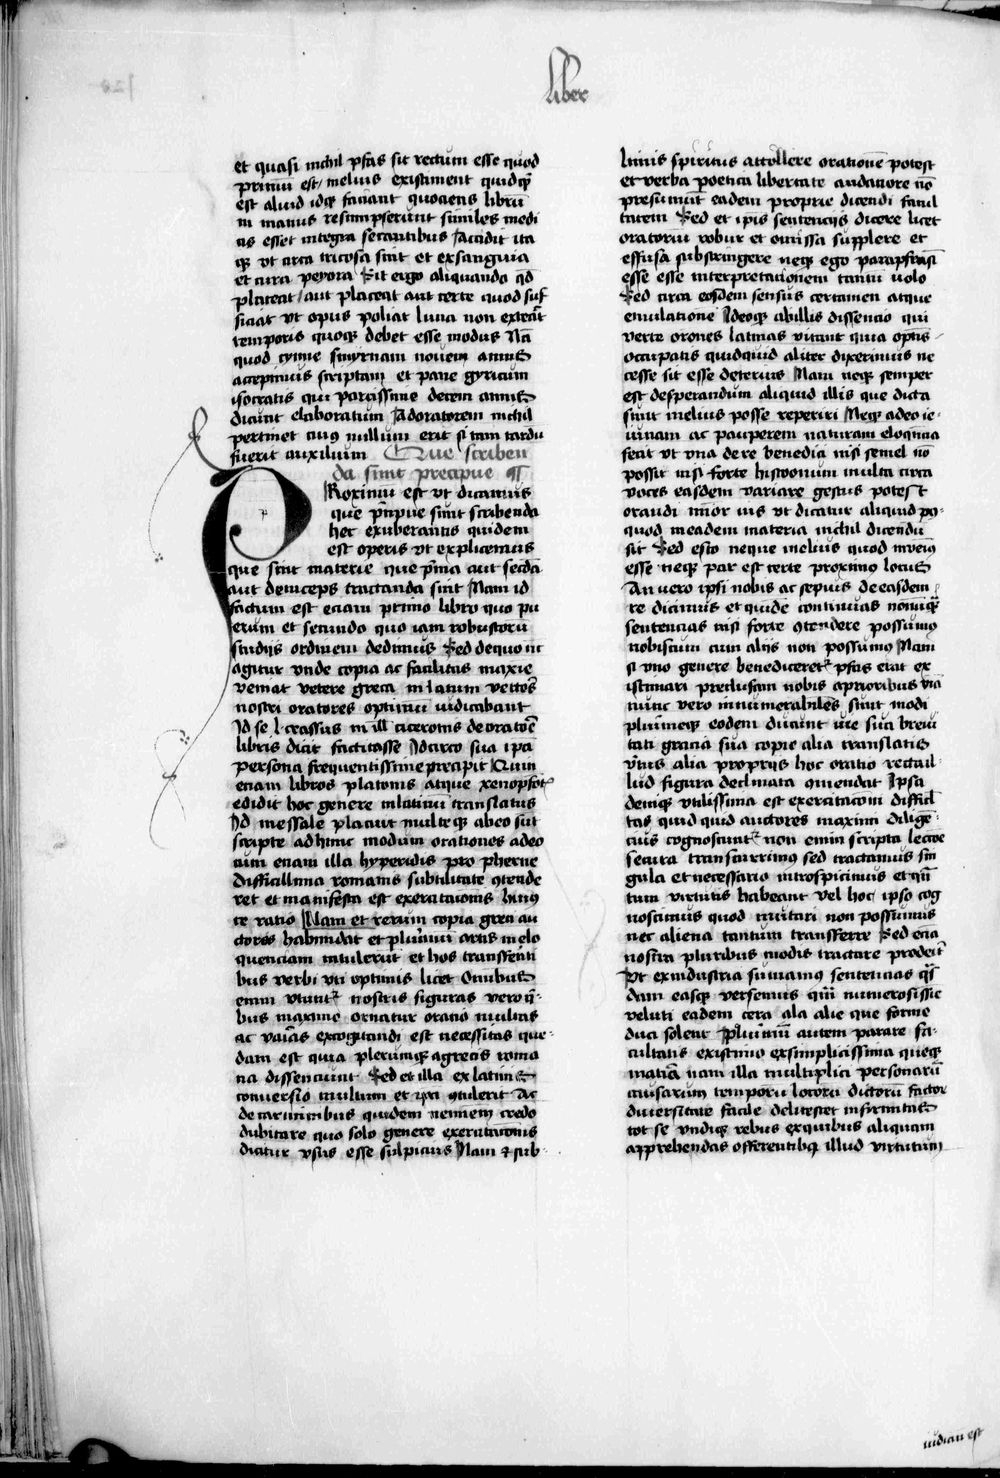 liber
et quasi nichil phas sit rectum esse quod
primū est/ melius existiment quidq̄
est aliud idq̨ faciant quociens librū
in manus resumpserunt similes medi
cis esset integra secantibus Accidit ita
q̨ vt circa tricosa sint et exsanguia
et cura peyora Sit ergo aliquando qd̄
placeat/ aut placeat aut certe quod suf
ficiat vt opus poliat luna non exterāt
temporis quoq̨ debet esse modus Nā
quod cynne smyrnam nouem annis
accepimus scriptam et pane gyricum
isocratis qui parcissime decem annis
dicunt elaboratum Adoratorem nichil
pertinet cuiꝰ nullum erit si tam tardū
fuerit auxilium Que scriben
da sint precipue ¶
PRoximū est vt dicamus
que p̄cipue sint scribenda
hec exuberantis quidem
est operis vt explicemus
que sint materie que p̄ma aut secda
aut deinceps tractanda sint Nam id
factum est eciam primo libro quo pu
erum et secundo quo iam robustorū
studijs ordinem dedimus Sed dequo nc
agitur vnde copia ac facilitas maxie
veniat vetere greca in latum vertoēs
nostri oratores optimū iudicabant
Id se l crassus in ill ciceronis de oratoē
libris dicit factitasse Idcirco sua ipā
persona frequentissime precipit Quin
eciam libros platonis atque xenophōt
edidit hoc genere inlatinū translatus
Id messale placuit multeq̨ abeo sūt
scripte ad hunc modum orationes adeo
cum etiam illa hyperidis pro pherne
difficillima romanis subtilitate ꝯtende
ret et manifesta est exeratacōis huiꝰ
ce ratio Nam et rerum copia greci au
ctores habundāt et plurimū artis in elo
quenciam intulerūt et hos transferēti
bus verbi vti optimis licet Omibus
enim vtimur nostris figuras vero q̄-
bus maxime ornatur oratio multas
ac varias excogitandi est necessitas que-
dam est quia plerumq̨ agrecis roma
na dissenciunt Sed et illa ex latinis
conuersio multum et ipa ꝯtulerit Ac
de carminibus quidem neminem credo
dubitare quo solo genere exercitacōnis
dicitur vsus esse sulpicius Nam ⁊ sub-
limis spiritus attollere orationē potest
et verba poetica libertate audatiore nō
presumūt eadem proprie dicendi facul
tatem Sed et ipīs sentencijs dicere licet
oratoriū robur et omissa supplere et
effusa substringere neq̨ ego paraphrasī
esse esse interpretacionem tantū volo
Sed circa eosdem sensus certamen atque
emulationē Ideoq̨ abillis dissencio qui
verte orones latinas vitant quia optīs-
occupatis quidquid aliter dixerimus ne
cesse sit esse deterius Nam neq̨ semper
est desperandum aliquid illis que dicta
sunt melius posse reperiri Neq̨ adeo ie-
iunam ac pauperem naturam eloq̄ncia
fecit vt vna de re benedici nisi semel nō
possit nisi forte histrionum multa circa
voces easdem variare gestus potest
orandi mīor vis vt dicatur aliquid po-
quod ineadem materia nichil dicendū
sit Sed esto neque melius quod inveīꝰ
esse neq̨ par est certe proximo locus
An vero ipsi nobis ac sepius de easdem
re dicimus et quidē continuas nonnūq̄
sentencias nisi forte ꝯtendere possumꝰ
nobiscum cum alijs non possumꝰ Nam
si vno genere benediceretr̄ phas erat ex
istimari preclusam nobis aprioribus viā
nunc vero innumerabiles sunt modi
plurimeq̨ eodem ducunt vie sua brevi
tati gracia sua copie alia translatis
v̄tus alia proprijs hoc oratio recta il-
lud figura declinata ꝯmendat Ipsa
deniq̨ vtilissima est exercitacōni difficl
tas quid quid auctores maximi diligē-
cius cognoscuntr̄ non enim scripta lectōe
secura transcurrimꝰ sed tractamus sin
gula et necessario introspicimus et quā
tum virtutis habeant vel hoc ipso cog
noscimus quod imitari non possumus
nec aliena tantum transferre Sed eciā
nostra pluribus modis tractare proderit
Ut exindustria sumamus sentencias qs̄
dam easq̨ versemus quā numerosissie
veluti eadem cera alia alie que forme
duci solent Plurimū autem parare fa-
cultatis existimo exsimplicissima queq̨
matiā nam illa multiplici personarū
causarum temporū locorū dictorū factor
diuersitate facile delitescet infirmitas
tot se vndiq̨ rebus exquibus aliquam
apprehendas offerentibq̨ illud virtutum
iudiciū est